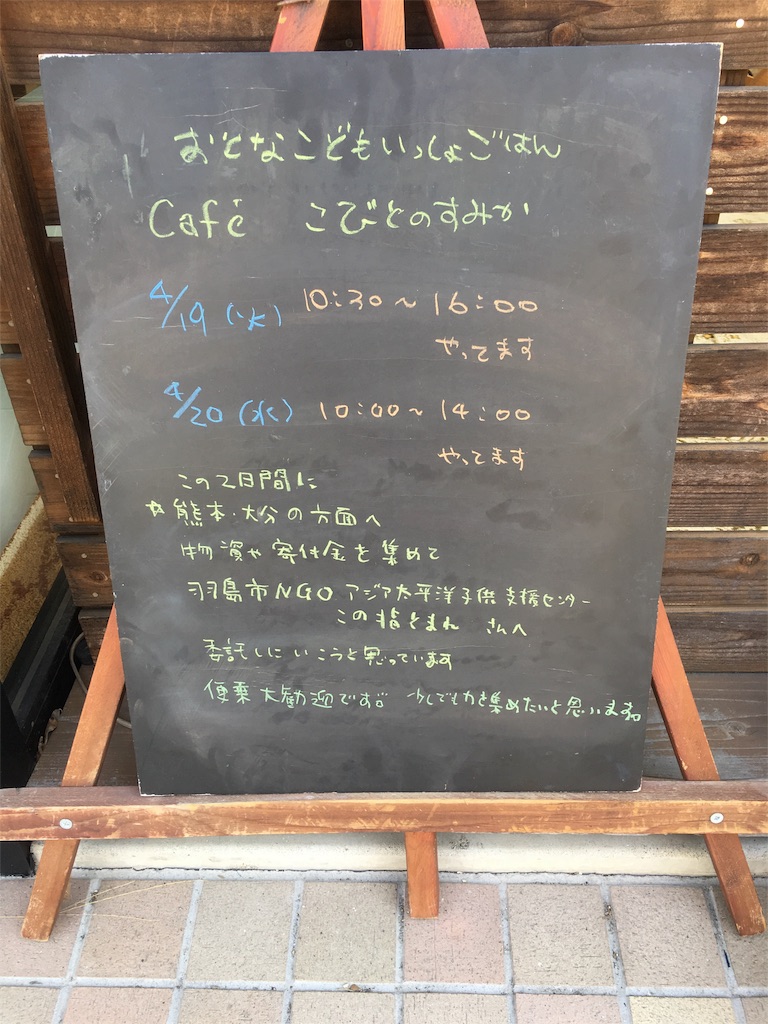 おとなこどもいっしょごはん
Café こびとのすみか
4/19 (火) 10:30〜16:00
やってます
4/20 (水) 10:00〜14:00
やってます
この2日間に
☆熊本・大分の方面へ
物資や寄付金を集めて
羽島市NGO アジア太平洋子供支援センター
この指とまれ さんへ
委託しにいこうと思っています
便乗大歓迎です。少しでも力を集めたいと思います。